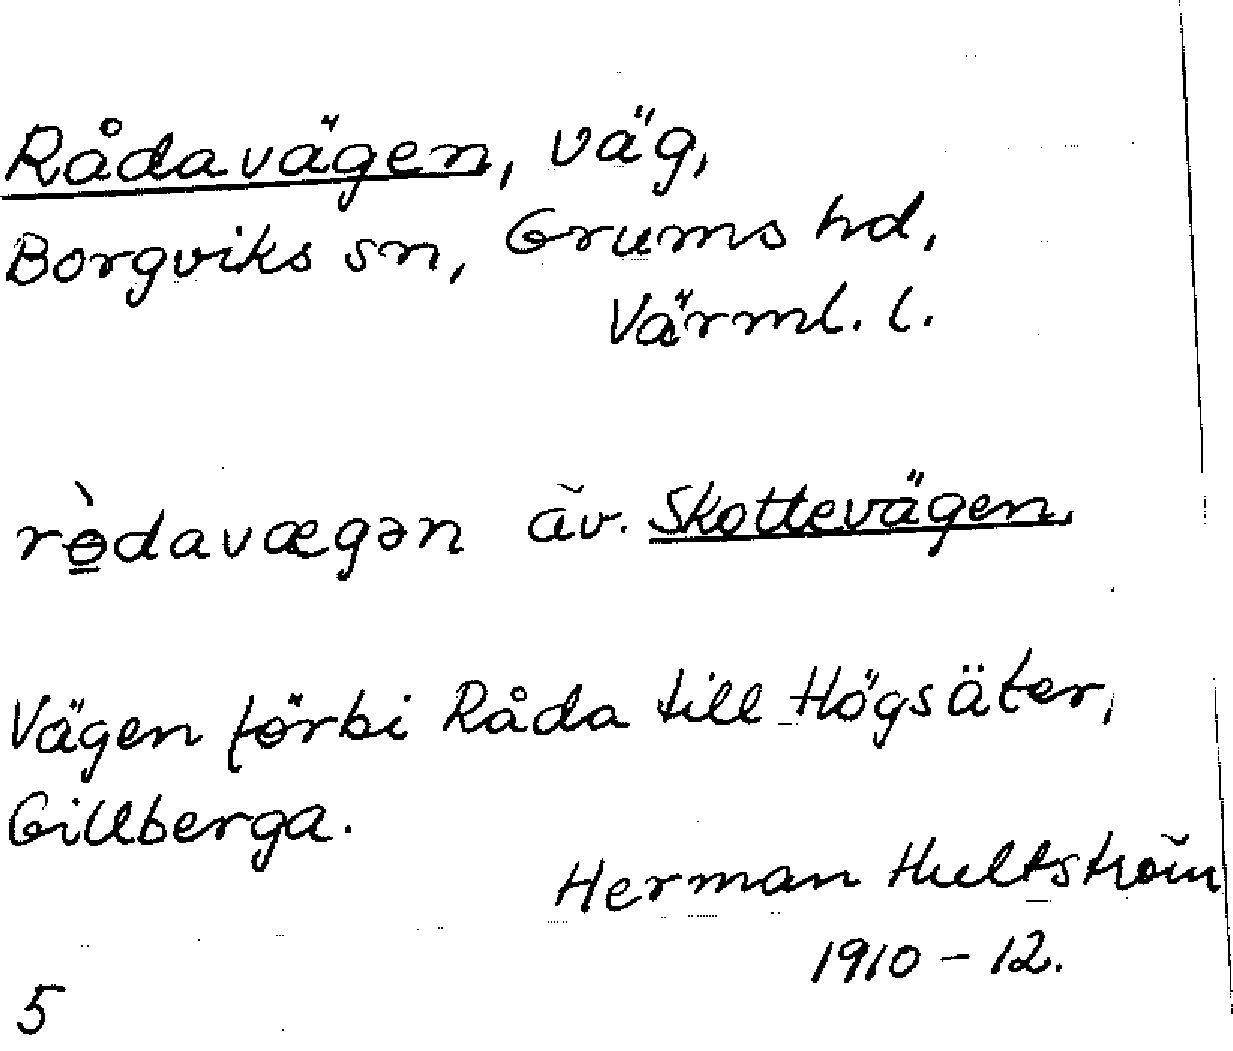 Rådavägen, väg,
Borgviks sn, Grums hd,
Värml. l.
ròdavægən äv. Skottevägen.
Vägen förbi Råda till Högsäter,
Gillberga.
Herman Hultström
1910-12.
5